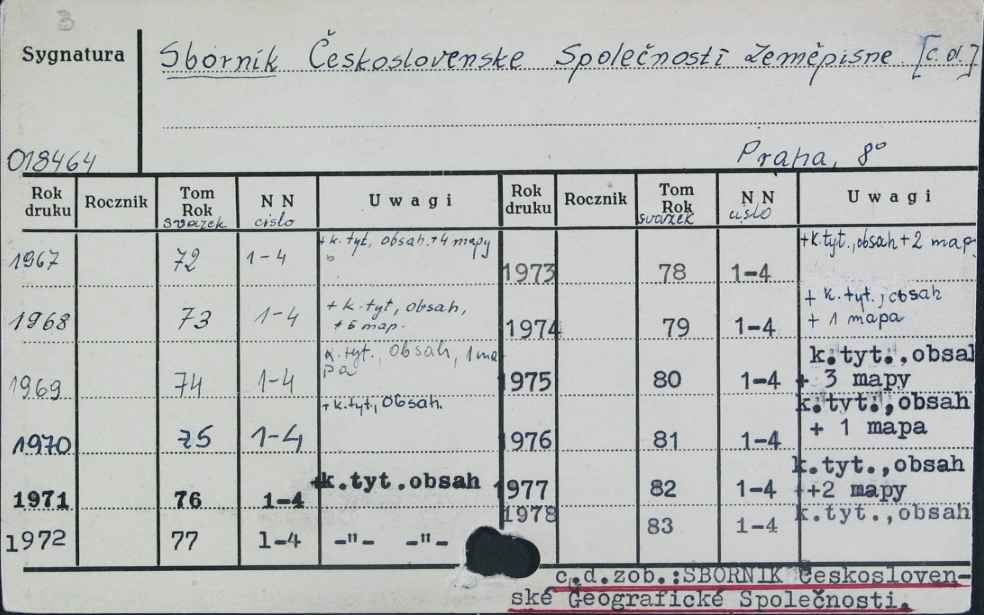 3
Sygnatura
Sborník Československe Společnosti Zeměpisne [c.d.]
018464
Praha, 8°
Rok druku Rocznik Tom Rok svazek NN cislo Uwagi Rok druku Rocznik Tom Rok svazek NN cislo Uwagi
1967 72 1-4 +k. tyt, obsah.+4 mapy
1968 73 1-4 + k. tyt, obsah, + 5 map.
1969 74 1-4 k. tyt., Obsah, 1 mapa
1970 75 1-4 +k.tyt, Obsah.
1971 76 1-4 +k.tyt.obsah
1972 77 1-4 -"- -"-
1973 78 1-4 +k.tyt., obsah + 2 map.
1974 79 1-4 + k.tyt., obsah + 1 mapa
1975 80 1-4 k.tyt.,obsa + 3 mapy
1976 81 1-4 k.tyt.,obsah + 1 mapa
1977 82 1-4 k.tyt.,obsah ++2 mapy
1978 83 1-4 k.tyt.,obsah
c.d.zob.:SBORNIK Českosloven-
ské Geografické Společnosti.